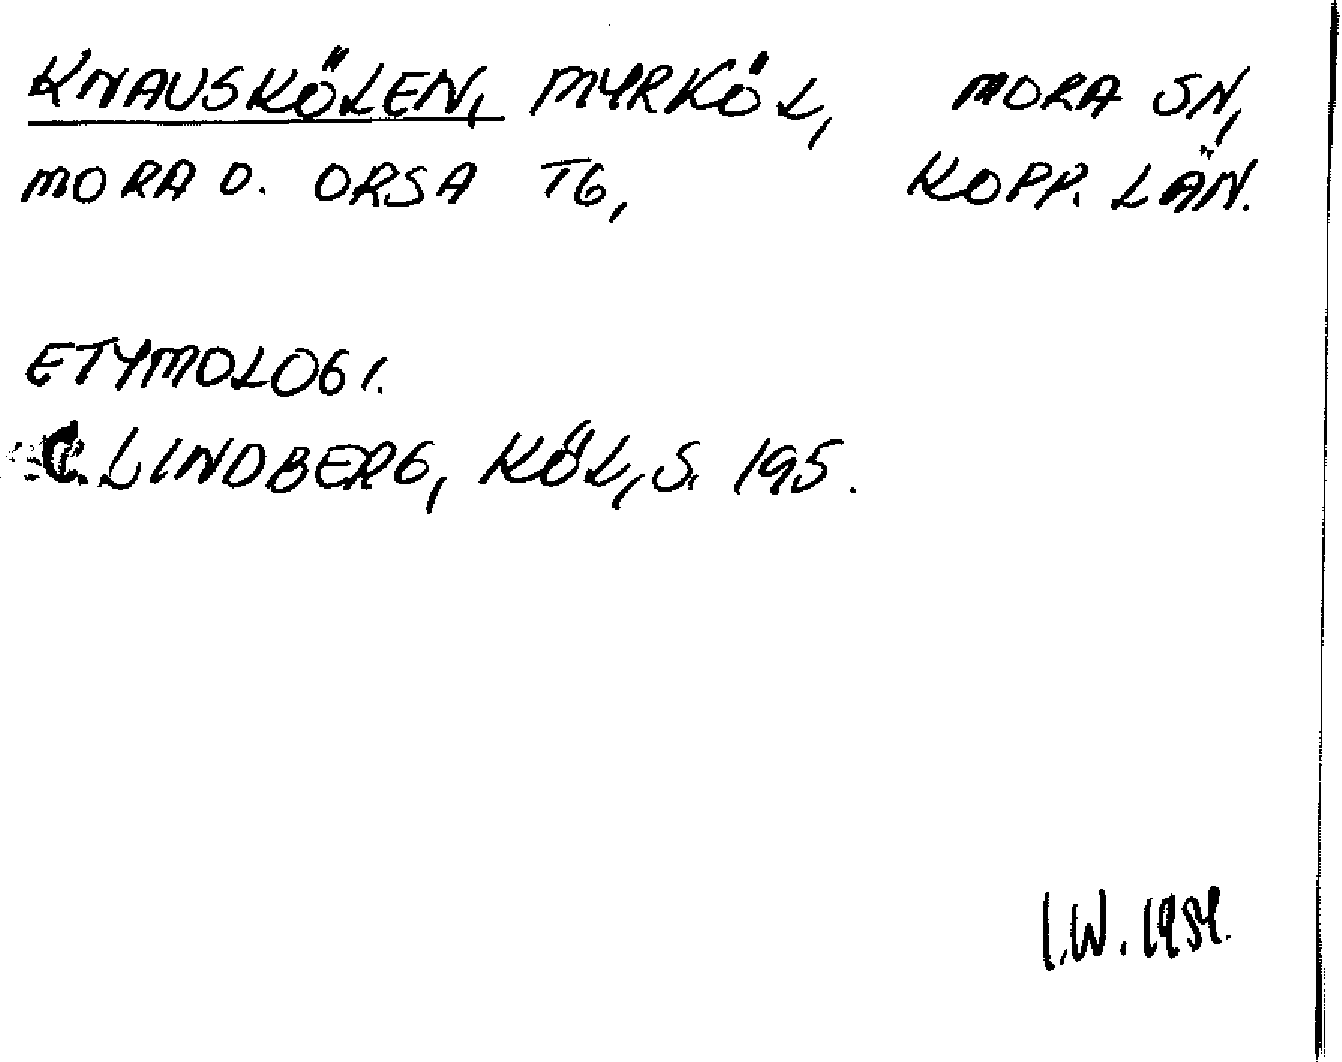 KNAUSKÖLEN, MYRKÖL, MORA SN,
MORA O. ORSA TG, KOPP. LÄN.
ETYMOLOGI.
C. LINDBERG, KÖL, S. 195.
I.W. 1984.